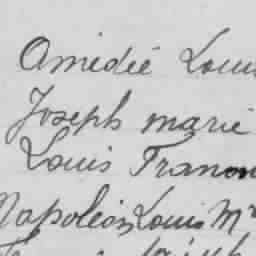 Amédée Louis
Joseph marie
Louis
Napoléon Louis Mr